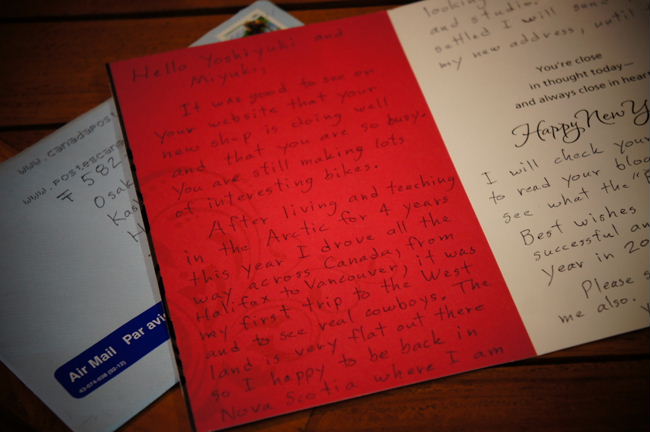 Hello Yoshiyuki and
Miyuki,
It was good to see on
your website that your
new shop is doing well
and that you are so busy.
You are still making lots
of interesting bikes.
After living and teaching
in the Arctic for 4 years
this year I drove all the
way across Canada, from
Halifax to Vancouver, it was
my first trip to the West
and to see real cowboys. The
land is very flat out there
so I happy to be back in
Nova Scotia where I am
looking
and studio.
settled I will
my new address, until
You're close
in thought today—
and always close in
Happy New
I will check your
to read your
see what the
Best wishes
successful
Year in 20
Please
me also.
www.canadapos
www.postescana
〒 582
Osak
Kas
Air Mail Par avi
43-074-038 (02-12)